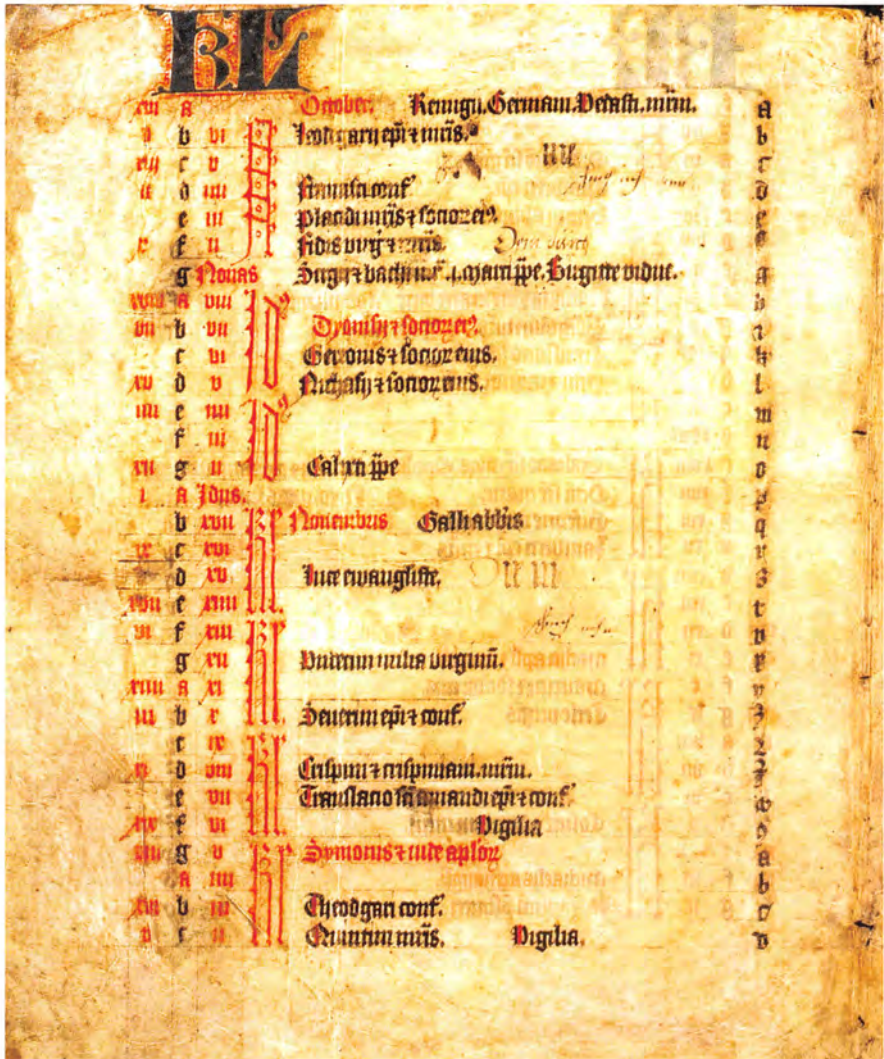 KL
xvi A October. Remigii. Germani. Vedasti. mrm. a
v b vi N Leodegarii epi ⁊ mris. b
xiii c v c
ii d iiii Francisci conf. d
e iii Placidi mris ⁊ socior eiꝰ. e
x f ii Fidis virg ⁊ mris. f
g Nonas Sergii ⁊ bachi mr. marci ppe. Birgitte vidue. g
xviii A viii Id9 h
vii b vii Dyonisii ⁊ socior eiꝰ. i
c vi Gereonis ⁊ socior eius. k
xv d v Nichasii ⁊ socior eius. l
iiii e iiii Id9 m
f iii n
xii g ii Calixti ppe o
i A Idus. p
b xvii Kl Nouembris Galli abbis q
ix c xvi r
d xv Luce ewangliste. s
xvii e xiiii t
vi f xiii Kl v
g xii Vndecim milia virginu. x
xiiii A xi y
iii b x Seuerini epi ⁊ conf. z
c ix Kl
xi d viii Crispini ⁊ crispiniani. mrm.
e vii Translacio sci amandi epi ⁊ conf.
xix f vi Vigilia 9
viii g v Kl Symonis ⁊ iude aplor a
A iiii b
xvi b iii Theodgari conf. c
v c ii Quintini mris. Vigilia. d